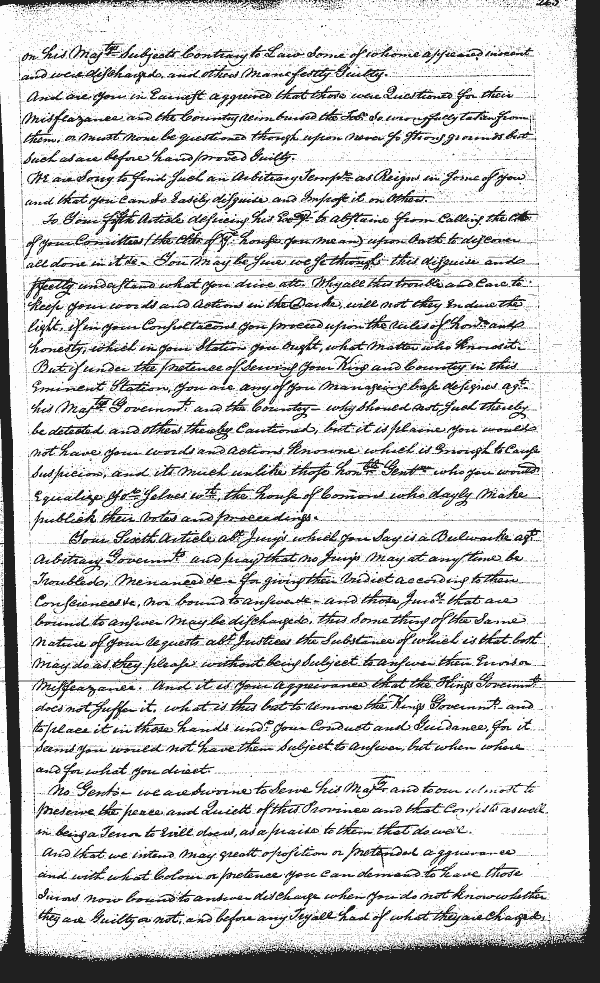 263
on his Maj.tys Subjects Contrary to Law Some of whome appeared inocent
and were discharged, and others Manefestly Guilty.
And are you in Earnest aggreived that those were Questioned for their
Misfeazance and the Country reimbursed the Tob: so wrongfully taken from
them, or must none be questioned though upon never so strong grounds but
such as are before hand proved Guilty.
We are Sorry to find Such an Arbitrary Temp.r as Reigns in Some of you
and that you can So Easily disguise and Impose it on Others.
To Your fifth Article desireing his Ex.cy to abstaine from Calling the Clk
of your Comittees/ the Clk of y.r house you mean/ upon Oath to discover
all done in it &c.- You May be Sure we see through this disguise and
pfectly understand what you drive att. Why all this trouble and Care to
keep your words and Actions in the Darke, will not they Endure the
light, if in your Consultacons you proceed upon the Rules of hon.r and
honesty, which in your Station you Ought, what matter who Knows it.
But if under the pretence of Serving Your King and Country in this
Eminent Station, you are any of you Manageing base designes ag.t
his Maj.tys Governm.t and the Country - why Should not Such thereby
be detected and others thereby Cautioned, but it is plaine you would
not have your words and Actions Knowne which is Enough to Cause
Suspicion, and its Much unlike those hon.ble Gent.n who you would
Equalize Yo.r Selves w.th, the house of Comons who dayly Make
publick their Votes and proceedings.
Your Sixth Article ab.t Jurys which you Say is a Bulwarke ag.t
Arbitrary Governm.t and pray that no Jurys May at any time be
Troubled, Menaced &c - for giving their Verdict according to their
Consciences &c, nor bound to answer &c - and those Juro.rs that are
bound to answer May be discharged, this Something of the Same
nature of your requests ab.t Justices the Substance of which is that both
May do as they please without being Subject to Answer their Errors or
Misfeazance. And it is Your Aggreivance that the Kings Governm.t
does not Suffer it, what is this but to remove the Kings Governm.t and
to place it in those hands und.r Your Conduct and Guidance, for it
Seems you would not have them Subject to Answer, but when where
and for what you direct.
No Gent.n - we are Sworne to Serve his Maj.ty and to our utmost to
preserve the peace and Quiett of this Province and that Consists as well
in being a Terror to Evill doers, as a praise to them that do well.
And that we intend May greatt oposition or pretended aggreivance
and with what Colour or pretence you can demand to have those
Jurors now bound to answer discharge when you do not know whether
they are Guilty or not, and before any Tryall had of what they are Charged,